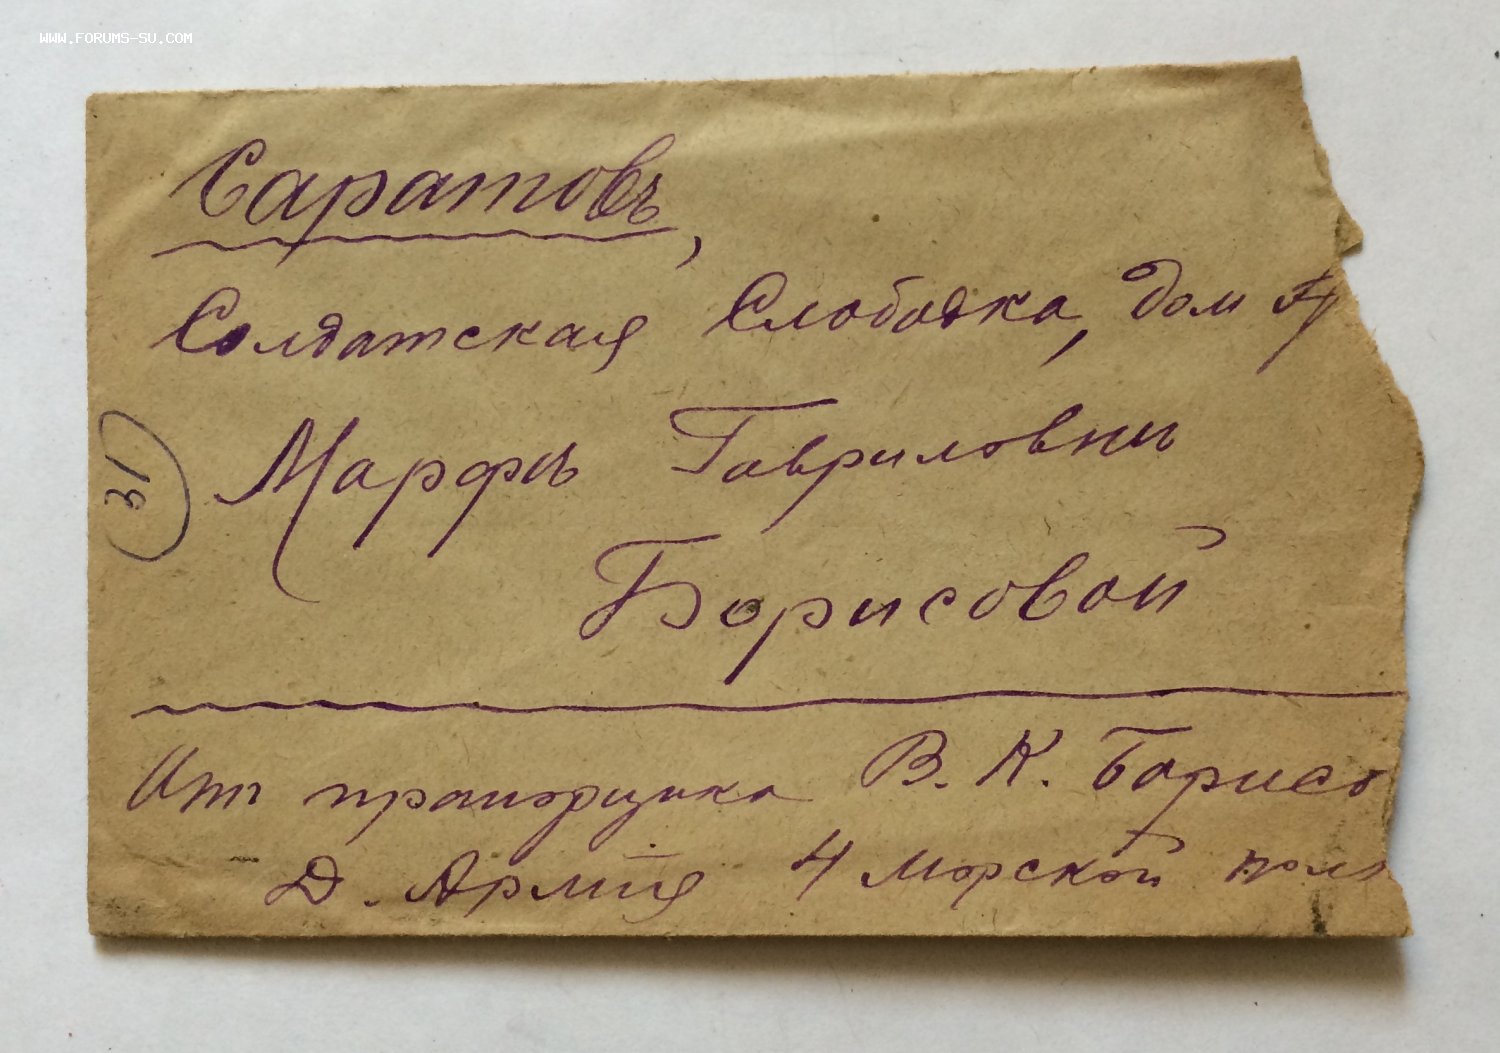 WWW.FORUMS-SU.COM
Саратовъ,
Солдатская Слободка, дом
Марфѣ Гавриловнѣ
Борисовой
31
От прапорщика В. К. Борисо
Д. Армія 4 Морской полк